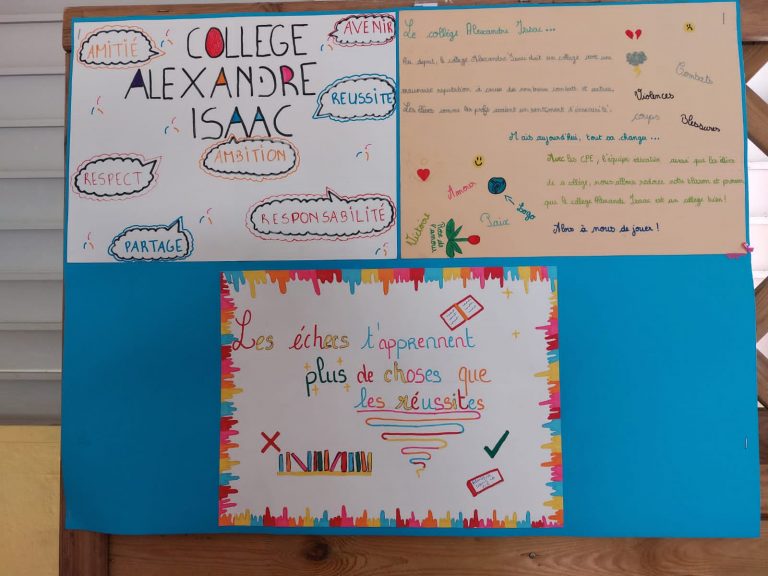 COLLEGE
ALEXANDRE
ISAAC
AMITIÉ
AVENIR
REUSSITE
AMBITION
RESPECT
RESPONSABILITÉ
PARTAGE
Le collège Alexandre Isaac...
Au départ, le collège Alexandre Isaac était un collège avec une
mauvaise réputation à cause de nombreux combats et autres.
Les élèves comme les profs avaient un sentiment d'insécurité.
Mais aujourd'hui, tout sa change...
Avec les CPE, l'équipe éducative ainsi que les élèves
de ce collège, nous allons redorer notre blason et prouver
que le collège Alexandre Isaac est un collège bien!
Alors à nous de jouer!
Combats
Violences
coups
Blessures
Amour
Victoire
Paix
Les échecs t'apprennent
plus de choses que
les réussites